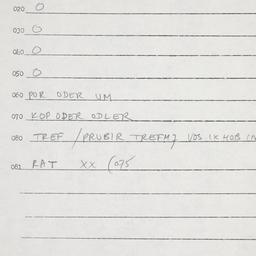 020 O
030 O
040 O
050 O
060 POR ODER UM
070 KOP ODER ODLER
080 TREF / PRUBIR TREFM] VOS 1X 40B
081 RAT XX (075